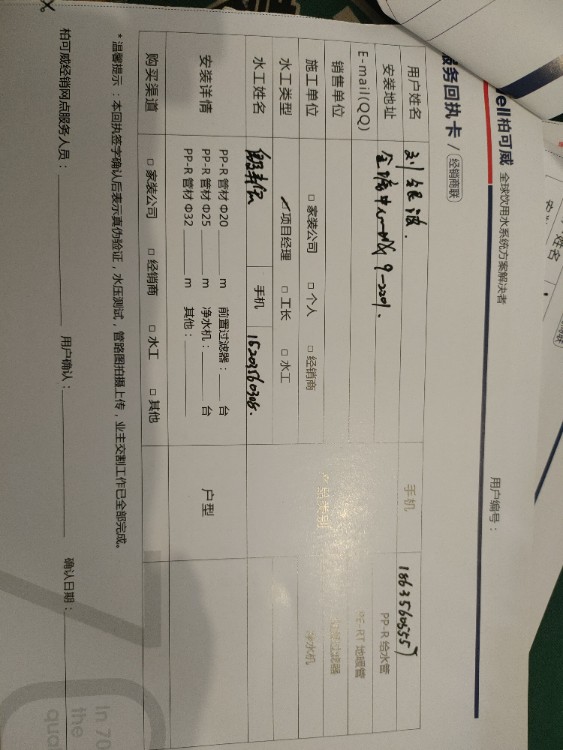 ell柏可威 全球饮用水系统方案解决者
服务回执卡 / 经销商联
用户编号：
用户姓名 刘银波 手机 18635605557
安装地址 9-2201.
E-mail(QQ) PP-R 给水管
销售单位 产品类别 PE-RT 地暖管
施工单位 □ 家装公司 □ 个人 □ 经销商 前置过滤器
水工类型 ☑ 项目经理 □ 工长 □ 水工 净水机
水工姓名 手机 15203560308.
安装详情 PP-R 管材 Φ20 m 前置过滤器： 台 户型
PP-R 管材 Φ25 m 净水机： 台
PP-R 管材 Φ32 m 其他：
购买渠道 □ 家装公司 □ 经销商 □ 水工 □ 其他
*温馨提示：本回执签字确认后表示真伪验证，水压测试，管路图拍摄上传，业主交割工作已全部完成。
柏可威经销网点服务人员： 用户确认： 确认日期：
In 70
the
qua